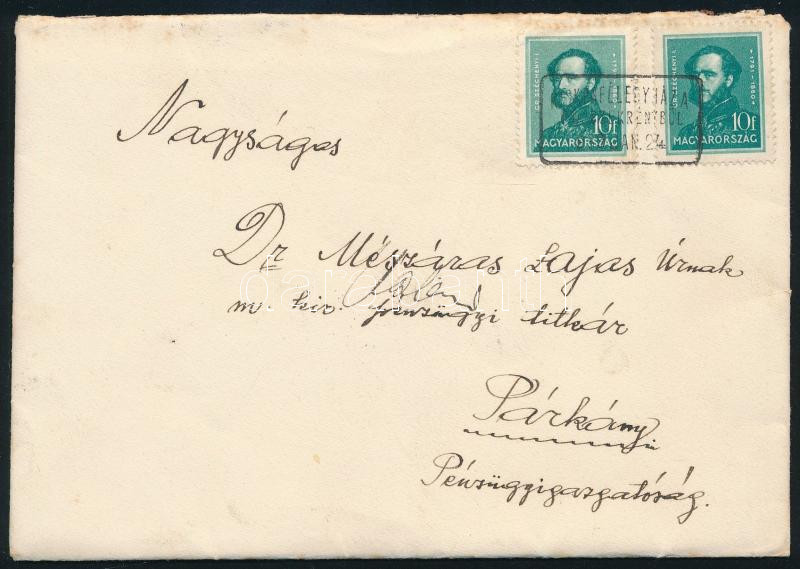 GR. SZÉCHENYI I. 1791-1860
10f
MAGYARORSZÁG
GR. SZÉCHENYI I. 1791-1860
10f
MAGYARORSZÁG
JAN. 24
Nagyságos
Dr Mészáros Lajos Úrnak
m. kir. pénzügyi titkár
Párkány
Pénzügyigazgatóság.